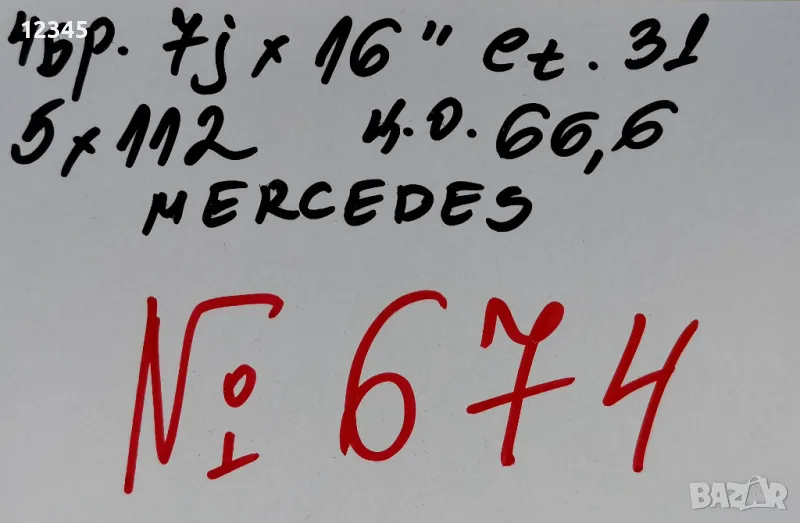 12345
4бр. 7j x 16" et. 31
5 x 112 ц.о. 66,6
MERCEDES
№ 674
BAZAR